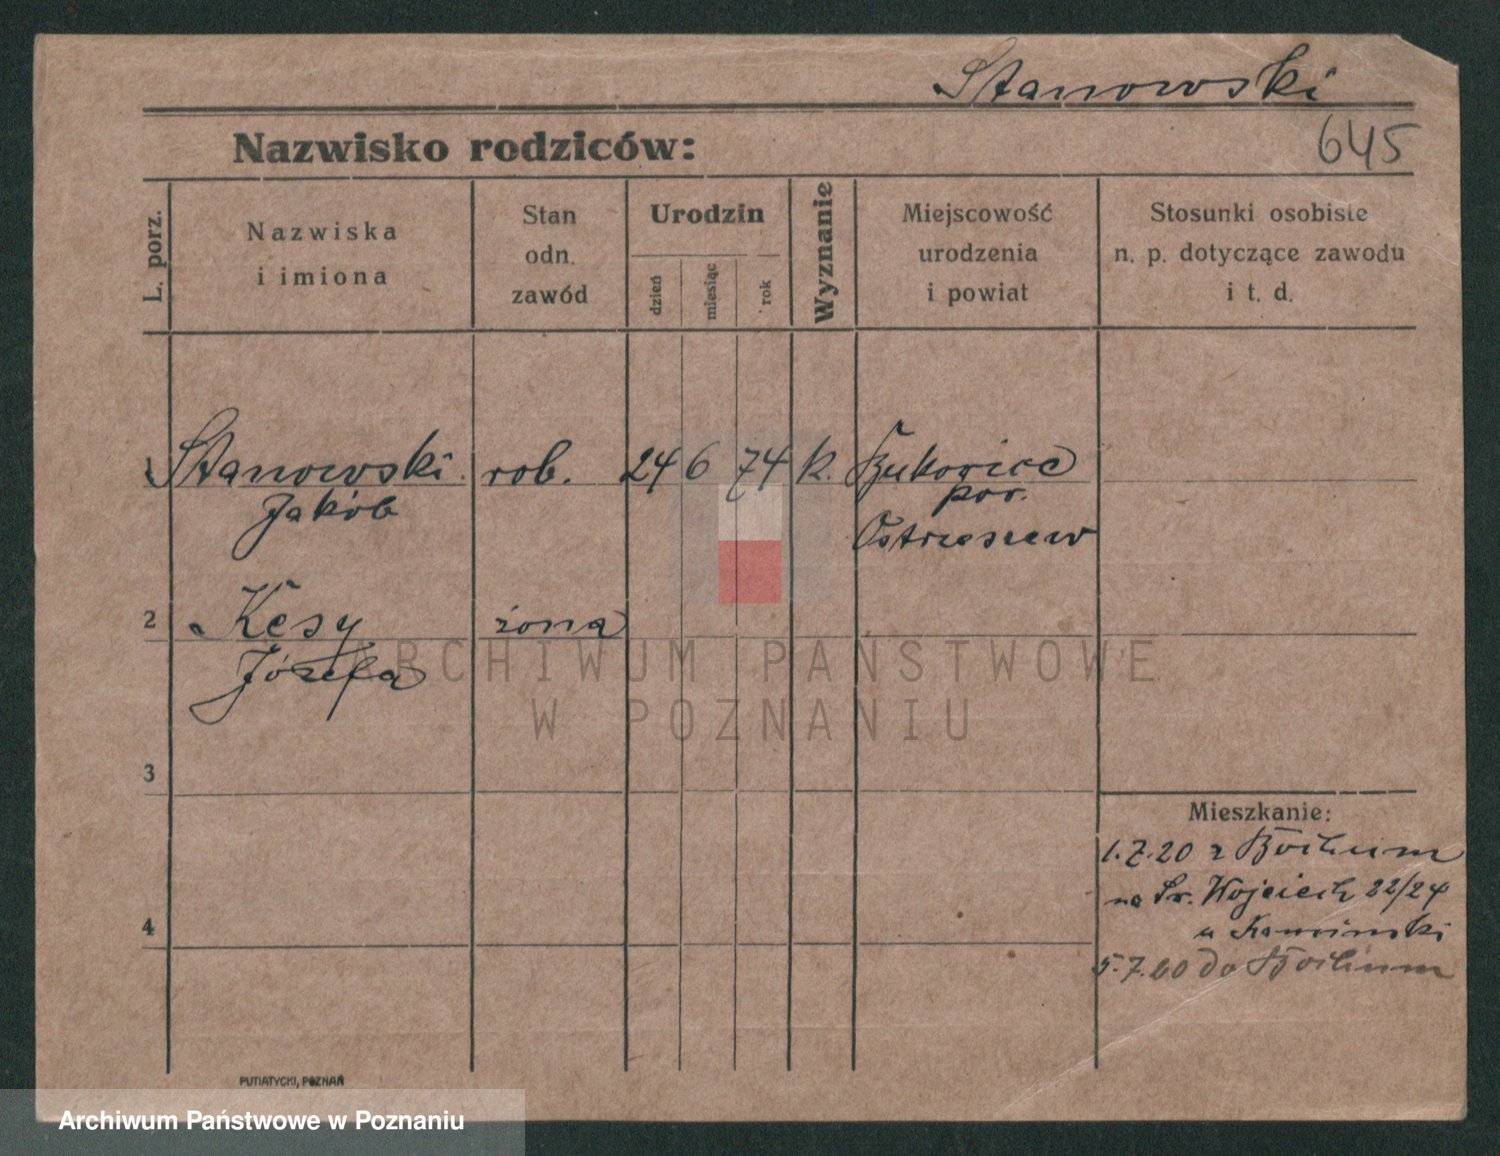 Stanowski
Nazwisko rodziców:
645
L. porz.
Nazwiska
i imiona
Stan
odn.
zawód
Urodzin
dzień
miesiąc
rok
Wyznanie
Miejscowość
urodzenia
i powiat
Stosunki osobiste
n. p. dotyczące zawodu
i t. d.
1 Stanowski rob. 24 6 74 k. Bukowice
Jakób
pow.
Ostrzeszew
2 Kesy żona
Józefa
ARCHIWUM PAŃSTWOWE
W POZNANIU
3
Mieszkanie:
1.7.20 z Bochum
na Św. Wojciech 22/24
u Kamiński
4
5.7.20 do Bochum
PUTIATYCKI, POZNAŃ
Archiwum Państwowe w Poznaniu